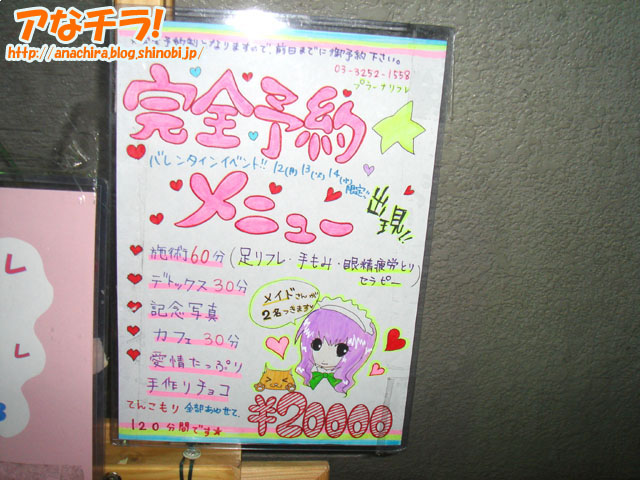 アなチラ!
http://anachira.blog.shinobi.jp/
なりますので、前日までに御予約下さい。
03-3252-1558
プラーナリフレ
完全予約
バレンタインイベント!! 12(月) 13(火) 14(水) 限定!!
メニュー
出現!!
施術60分 (足リフレ・手もみ・眼精疲労とり
セラピー
デトックス30分
記念写真
カフェ30分
愛情たっぷり
手作りチョコ
メイドさんが
2名つきます
てんこもり 全部あわせて、
120分間です★
¥20000
レ
レ